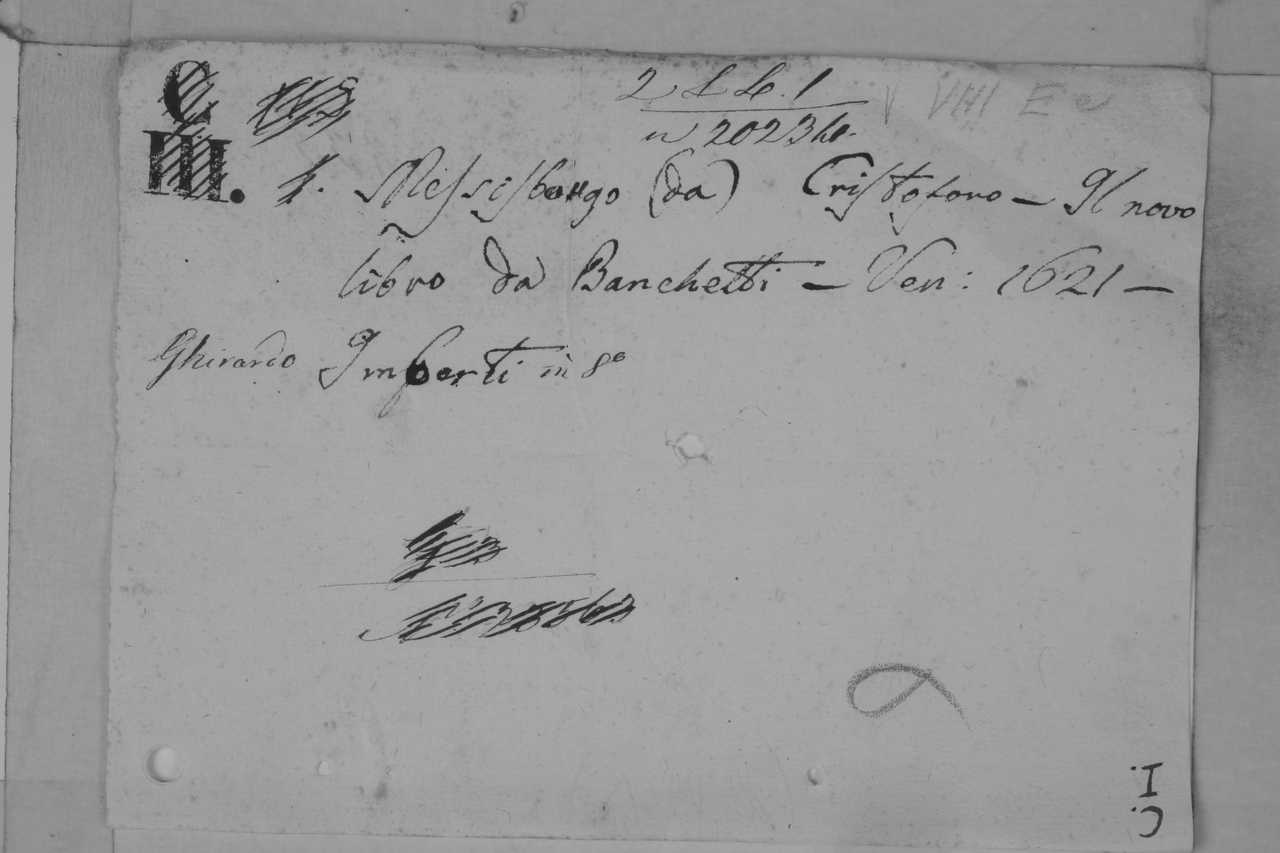 C
III.
2 L L. 1
n 20236.
V VIII E e
1. Messisbugo (da) Cristoforo – Il novo
libro da Banchetti – Ven: 1621 –
Ghirardo Imberti in 8º
C. I.